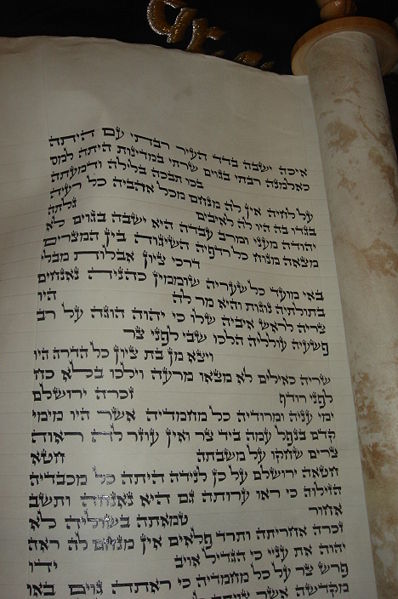 איכה ישבה בדד העיר רבתי עם היתה
כאלמנה רבתי בגוים שרתי במדינות היתה למס
בכו תבכה בלילה ודמעתה
על לחיה אין לה מנחם מכל אהביה כל רעיה
בגדו בה היו לה לאיבים גלתה
יהודה מעני ומרב עבדה היא ישבה בגוים לא
מצאה מנוח כל רדפיה השיגוה בין המצרים
דרכי ציון אבלות מבלי
באי מועד כל שעריה שוממין כהניה נאנחים
בתולתיה נוגות והיא מר לה היו
צריה לראש איביה שלו כי יהוה הוגה על רב
פשעיה עולליה הלכו שבי לפני צר
ויצא מן בת ציון כל הדרה היו
שריה כאילים לא מצאו מרעה וילכו בלא כח
לפני רודף זכרה ירושלם
ימי עניה ומרודיה כל מחמדיה אשר היו מימי
קדם בנפל עמה ביד צר ואין עוזר לה ראוה
צרים שחקו על משבתה חטא
חטאה ירושלם על כן לנידה היתה כל מכבדיה
הזילוה כי ראו ערותה גם היא נאנחה ותשב
אחור טמאתה בשוליה לא
זכרה אחריתה ותרד פלאים אין מנחם לה ראה
יהוה את עניי כי הגדיל אויב ידו
פרש צר על כל מחמדיה כי ראתה גוים באו
מקדשה אשר